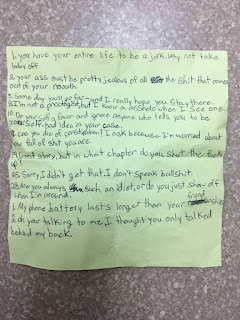 1. you have your entire life to be a jerk. Why not take
today off
2. your ass must be pretty jealous of all the shit that comes
out of your mouth.
3. Some day you'll go far- and I really hope you Stay there.
8. I'm not a proctologist, but I know a asshole when I see one
10. Do yourself a favor and ignore anyone who tells you to be
yourself. Bad idea in your case.
11. Can you die of constipation? I ask because I'm worried about
how full of shit you are.
14. Great story, but in what chapter do you shut the fuck
up?
15. Sorry, I didn't get that. I don't speak bullshit.
28. Are you always such an idiot, or do you just show off
when I'm around.
1. My phone battery lasts longer than your friend
2. oh your talking to me, I thought you only talked
behind my back.